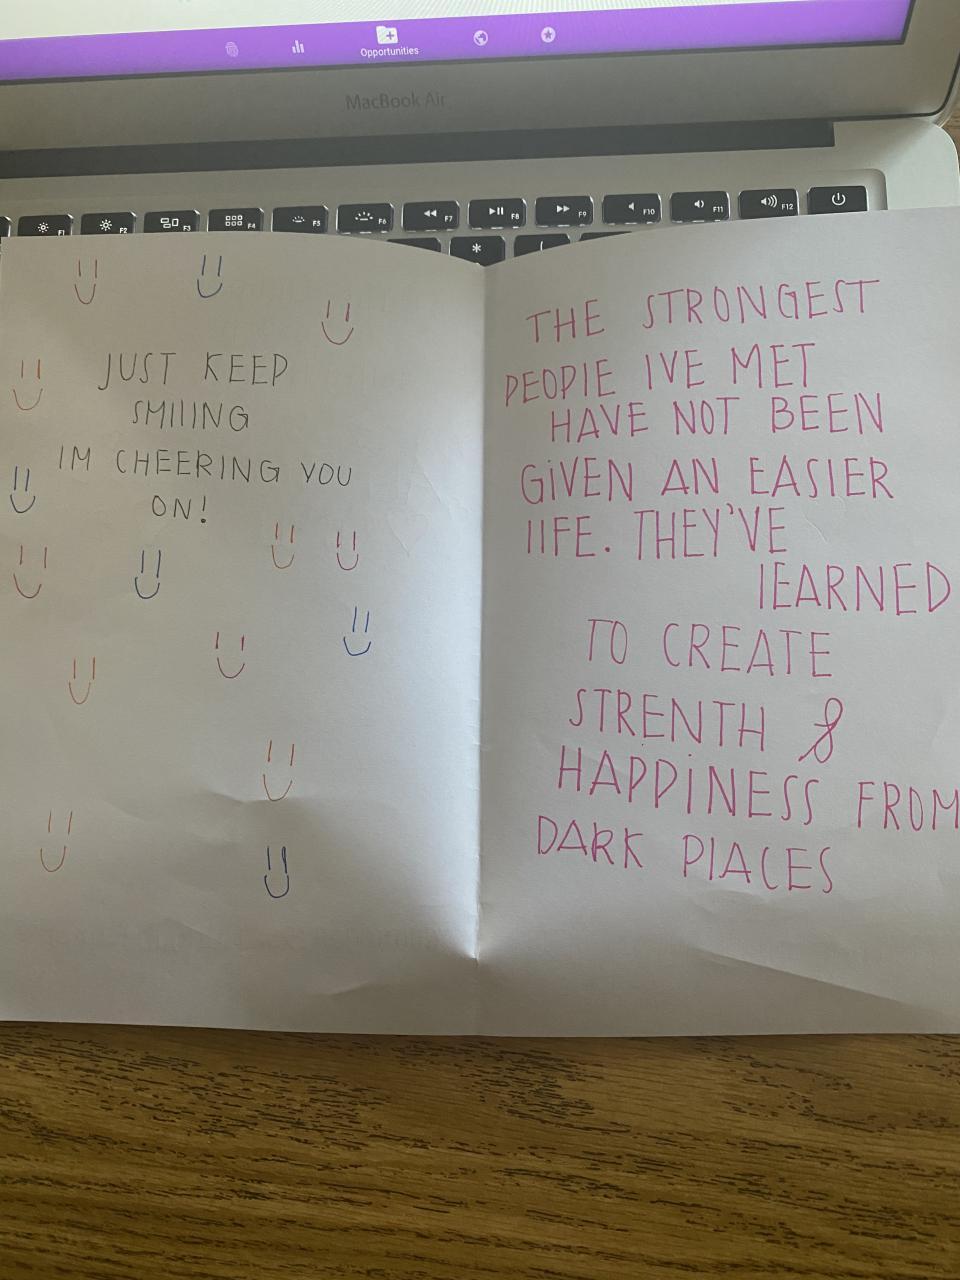 Opportunities
MacBook Air
F1 F2 F3 F4 F5 F6 F7 F8 F9 F10 F11 F12
*
(
JUST KEEP
SMIlING
IM CHEERING YOU
ON!
THE STRONGEST
PEOPlE IVE MET
HAVE NOT BEEN
GiVEN AN EASIER
lIFE. THEY'VE
lEARNED
TO CREATE
STRENTH &
HAPPiNESS FROM
DARK PlACES